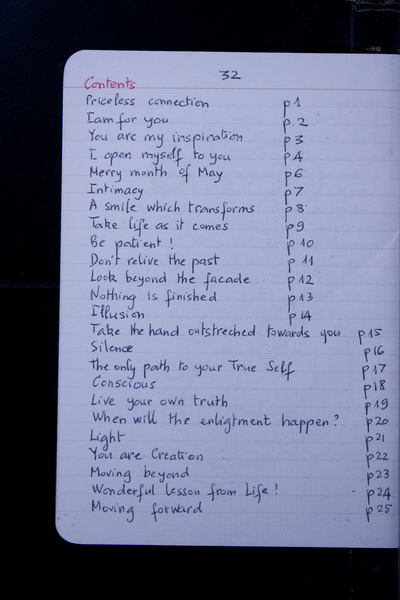 32
Contents
Priceless connection p1
I am for you p.2
You are my inspiration p3
I open myself to you p4
Merry month of May p6
Intimacy p7
A smile which transforms p8
Take life as it comes p9
Be patient ! p10
Don't relive the past p11
Look beyond the facade p12
Nothing is finished p13
Illusion p14
Take the hand outstreched towards you p15
Silence p16
The only path to your True Self p17
Conscious p18
Live your own truth p19
When will the enligtment happen ? p20
Light p21
You are Creation p22
Moving beyond p23
Wonderful lesson from Life ! - p24
Moving forward p25